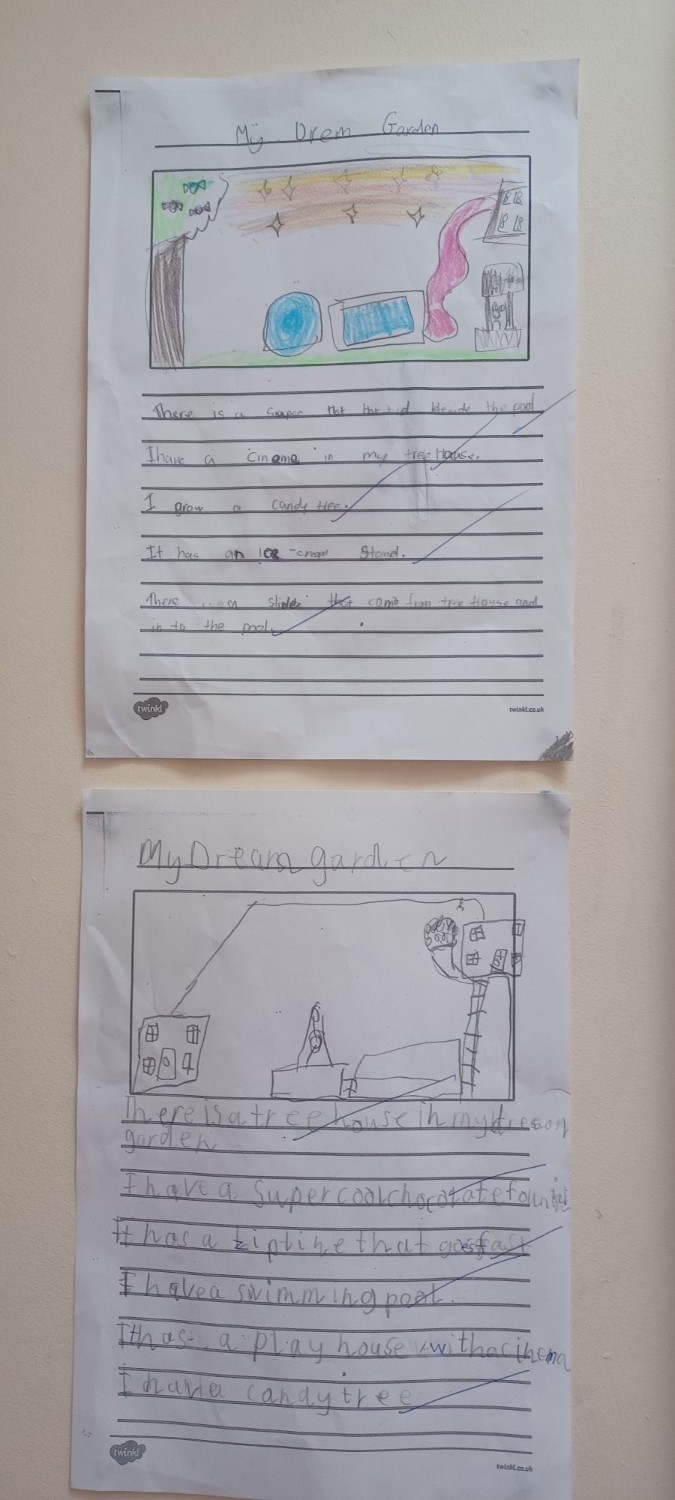 My Drem Garden
There is a super hot hot tud beside the pool
I have a cinema in my tree House.
I grow a candy tree.
It has an ice-cream Stand.
There a slide that comb from tree House and
in to the pool.
twinkl
twinkl.co.uk
My Dream garden
There is a tree house in my dream
garden
I have a super cool chocolate fountain
It has a zipline that goes fast
I have a swimming pool.
It has a play house with a cinema
I have a candy tree
twinkl
twinkl.co.uk